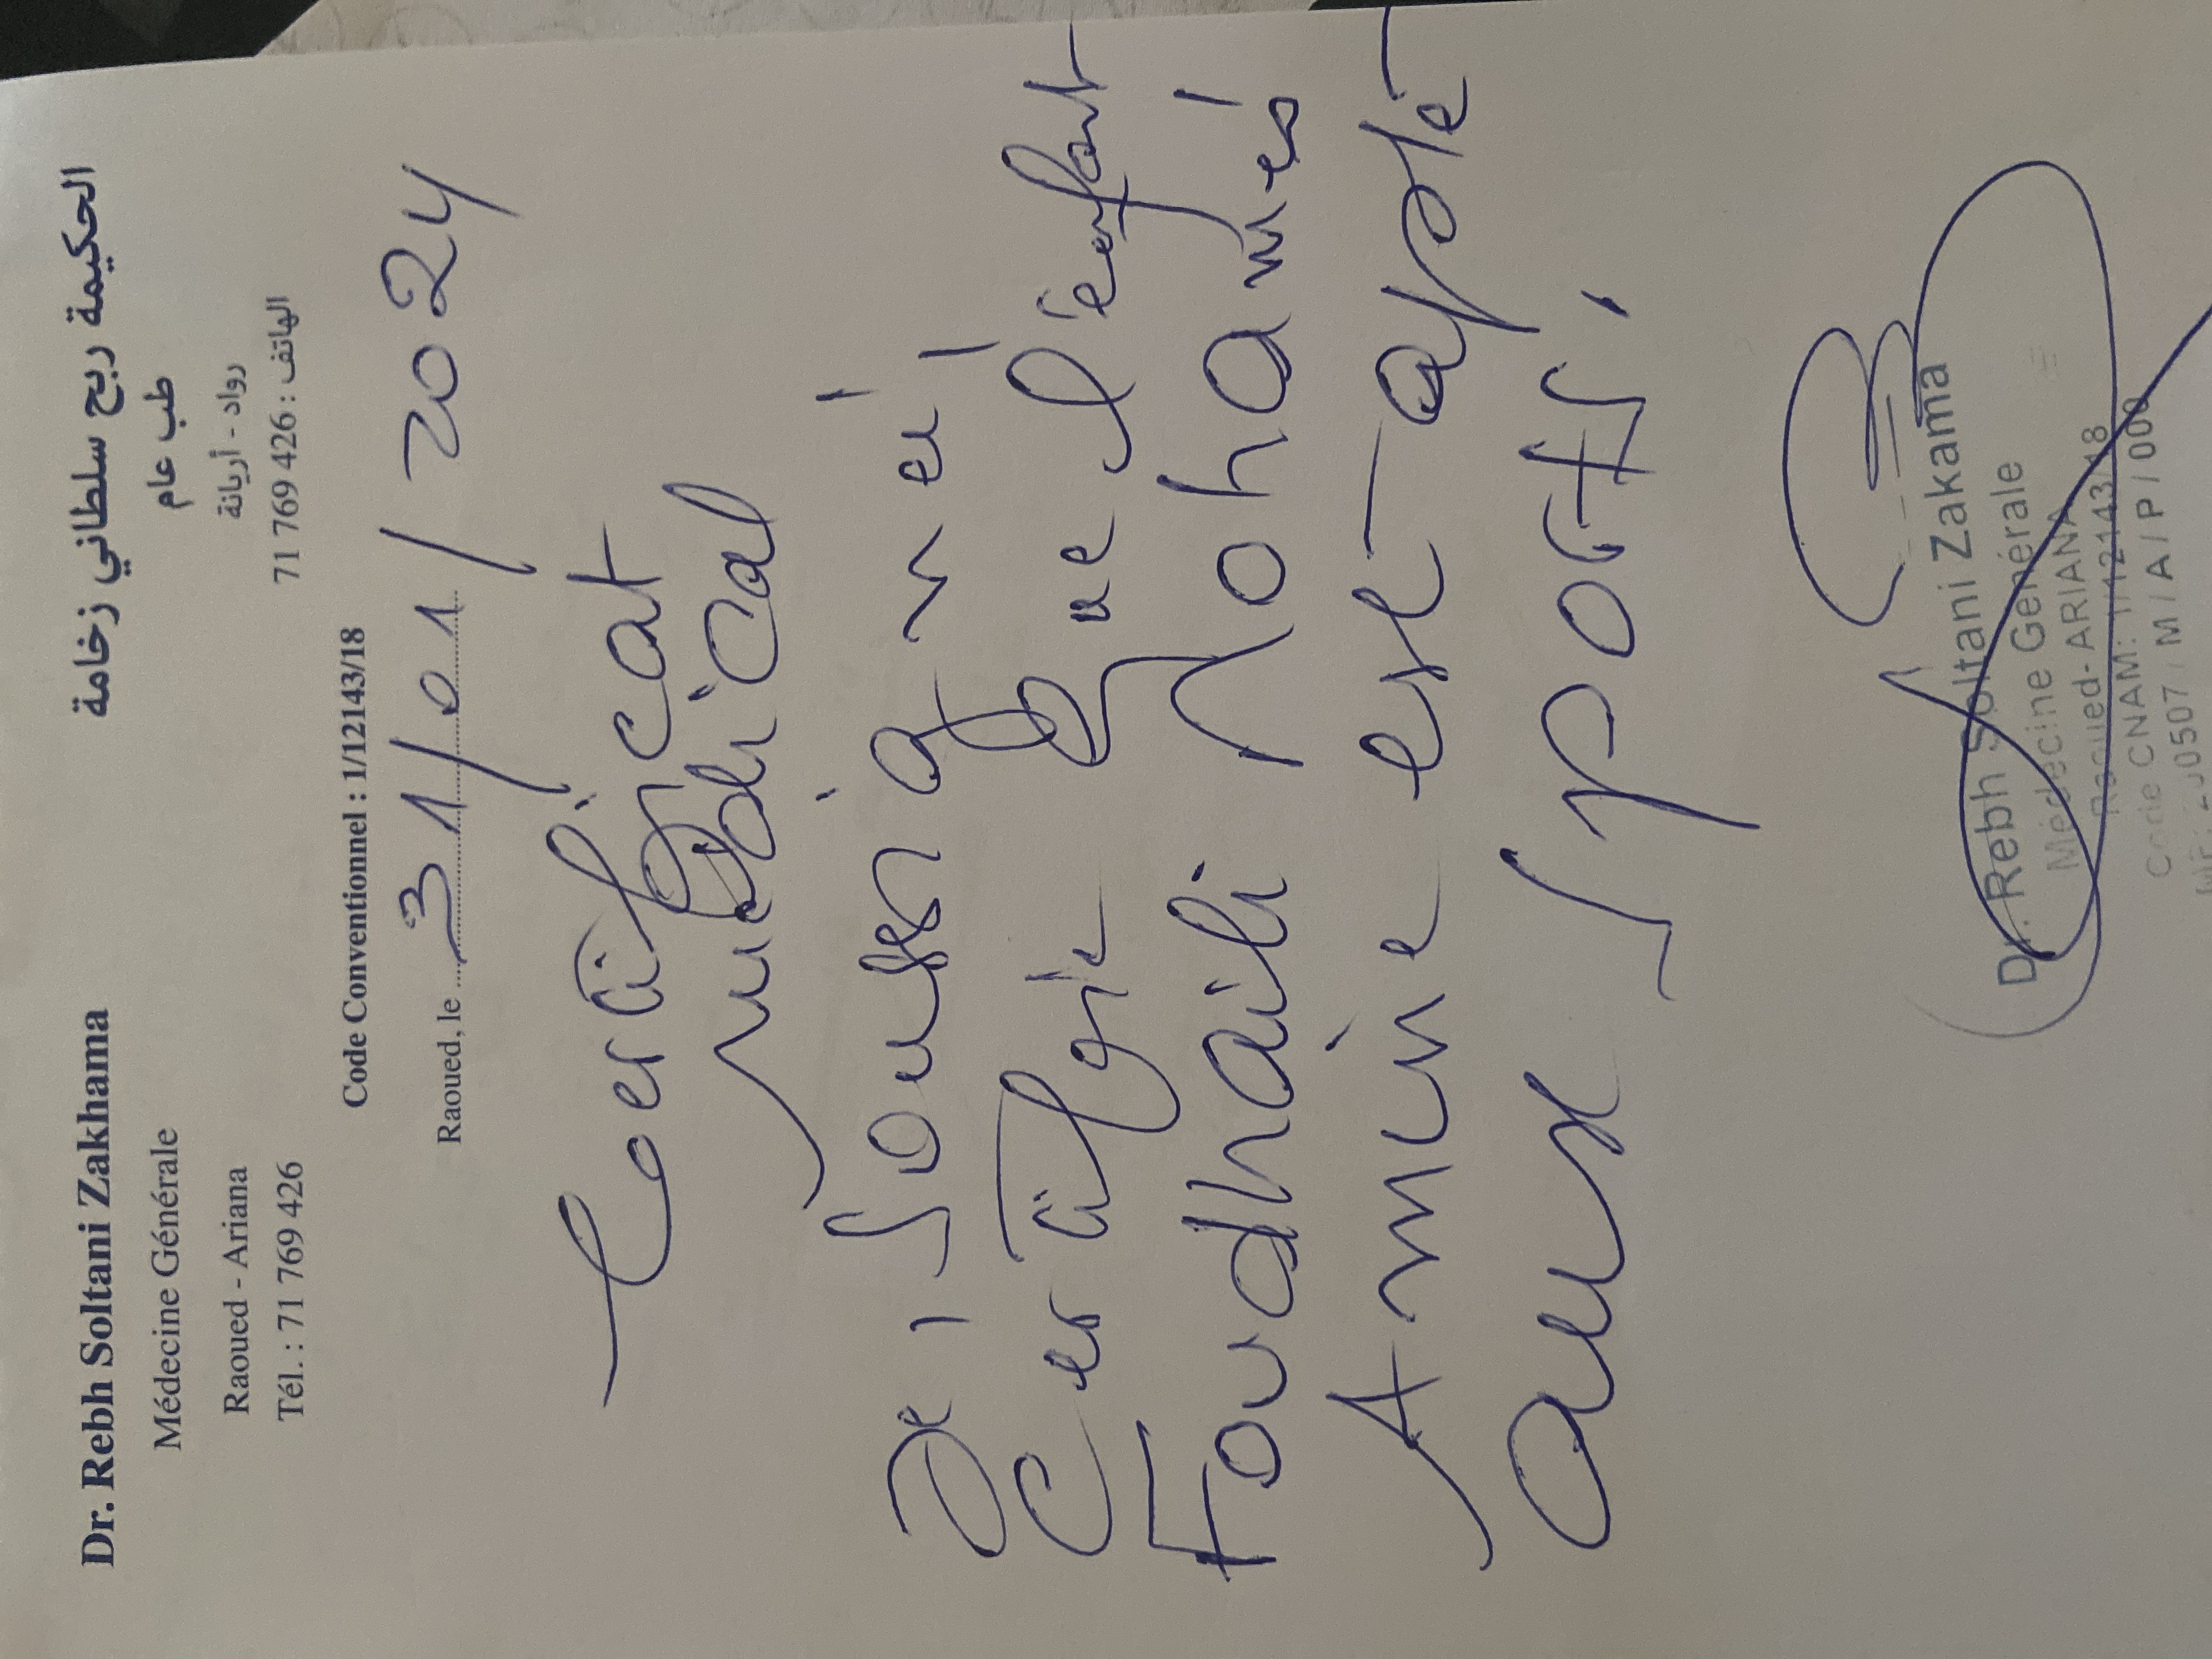 Dr. Rebh Soltani Zakhama
الحكيمة ربح سلطاني زخامة
Médecine Générale
طب عام
Raoued - Ariana
رواد - أريانة
Tél. : 71 769 426
الهاتف : 426 769 71
Code Conventionnel : 1/12143/18
Raoued, le 31/01/2024
Certificat
médical
Je soussigné
certifie que l'enfant
Foudhaili Mohamed
Amine est apte
aux sports,
Dr. Rebh Soltani Zakama
Médecine Générale
Raoued-ARIANA
Code CNAM: 1/12143/18
00507 / M / A / P / 000